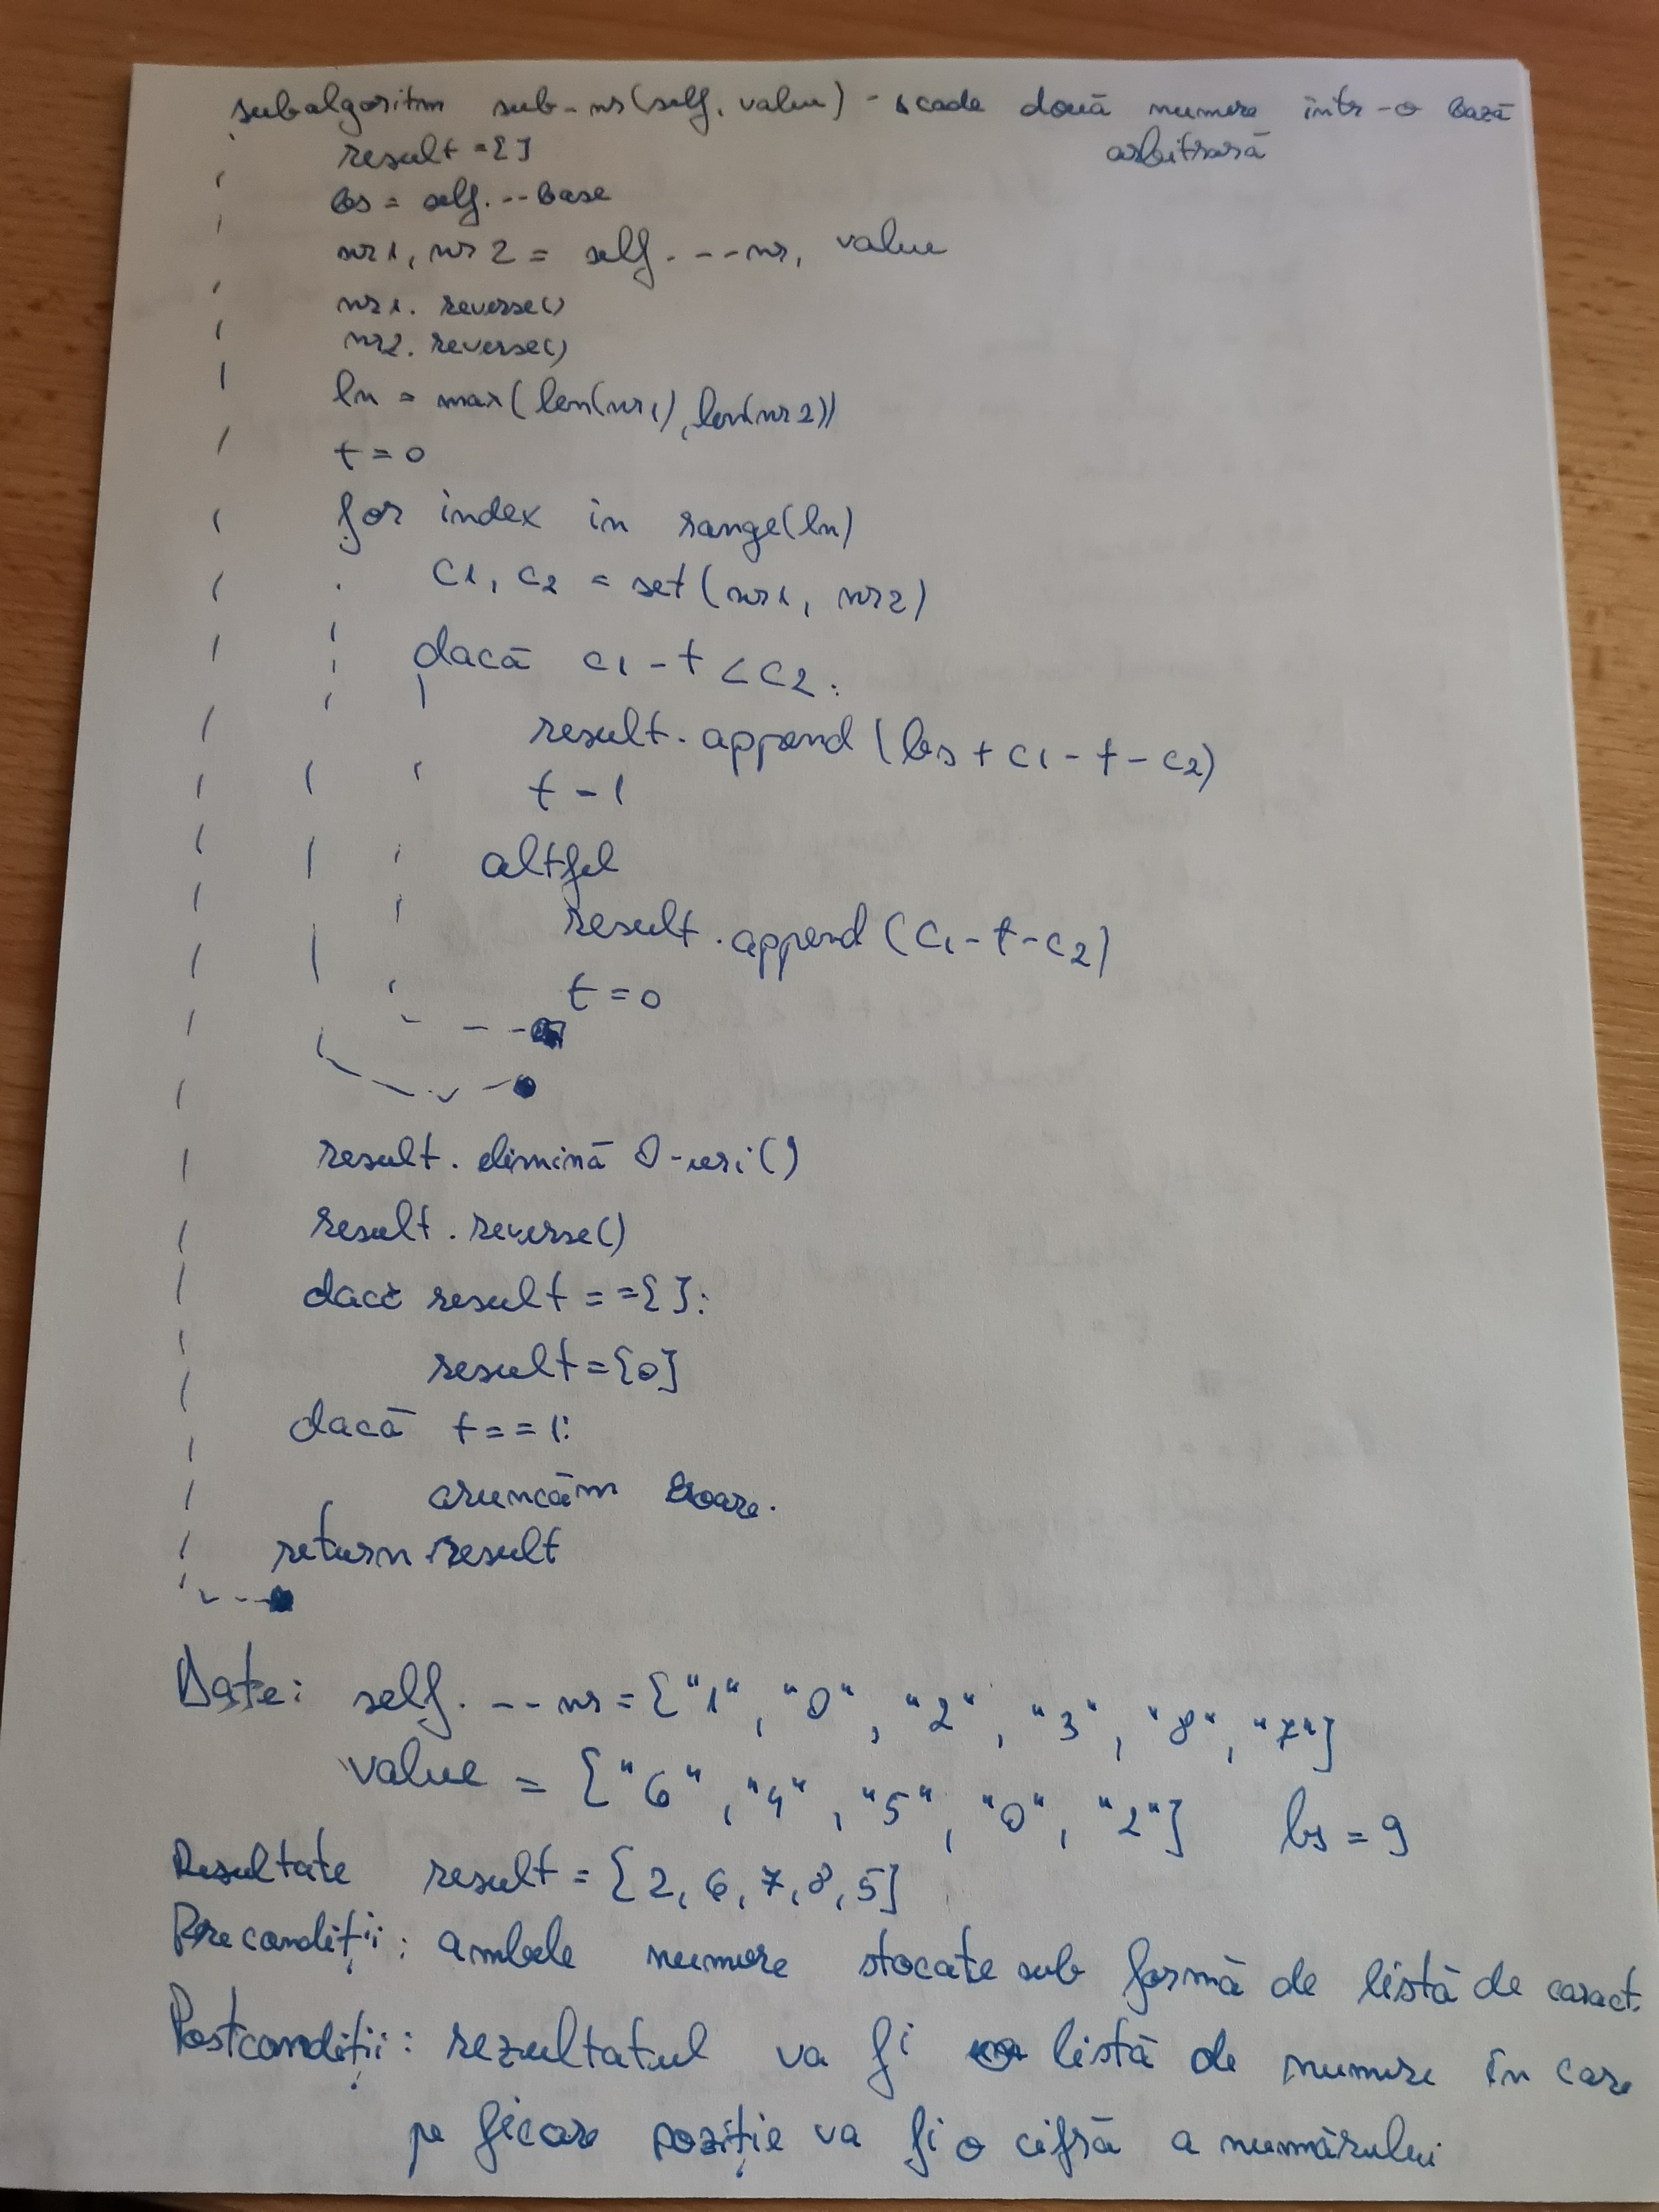 subalgoritm sub-nr(self, value) - scade două numere într-o bază
arbitrară
result = []
bs = self.--base
nr1, nr2 = self.---nr, value
nr1.reverse()
nr2.reverse()
ln = max(len(nr1), len(nr2))
t = 0
for index in range(ln)
c1, c2 = set(nr1, nr2)
dacă c1 - t < c2:
result.append(bs + c1 - t - c2)
t - 1
altfel
result.append(c1 - t - c2)
t = 0
result.elimină 0-uri()
result.reverse()
dacă result == []:
result = [0]
dacă t == 1:
aruncăm eroare.
return result
Date: self.--nr = ["1", "0", "2", "3", "8", "7"]
value = ["6", "4", "5", "0", "2"] bs = 9
Resultate result = [2, 6, 7, 8, 5]
Precondiții: ambele numere stocate sub formă de listă de caract.
Postcondiții: rezultatul va fi o listă de numere în care
pe ficare poziție va fi o cifră a numărului